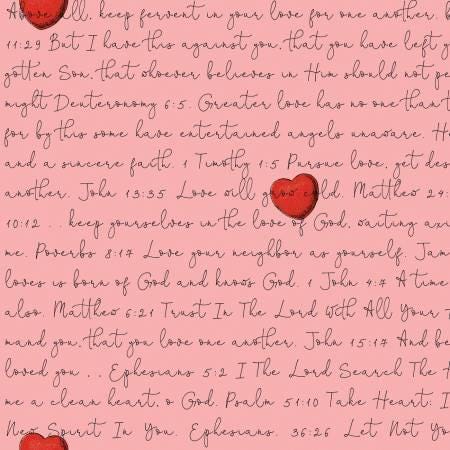 Above all, keep fervent in your love for one another. b
11:29 But I have this against you, that you have left y
gotten Son, that whoever believes in Him should not pe
might Deuteronomy 6:5. Greater love has no one than t
for by this some have entertained angels unaware. He
and a sincere faith. 1 Timothy 1:5 Pursue love, yet des
another. John 13:35 Love will grow cold. Matthew 24:
10:12 . . keep yourselves in the love of God, waiting axi
me. Poverbs 8:17 Love your neighbor as yourself. Jam
loves is born of God and knows God. 1 John 4:7 A time
also. Matthew 6:21 Trust In The Lord With All Your
mand you, that you love one another. John 15:17 And be
loved you . . Ephesians 5:2 I The Lord Search The H
me a clean heart, o God. Psalm 51:10 Take Heart: I
New Spirit In You. Ephesians. 36:26 Let Not Yo